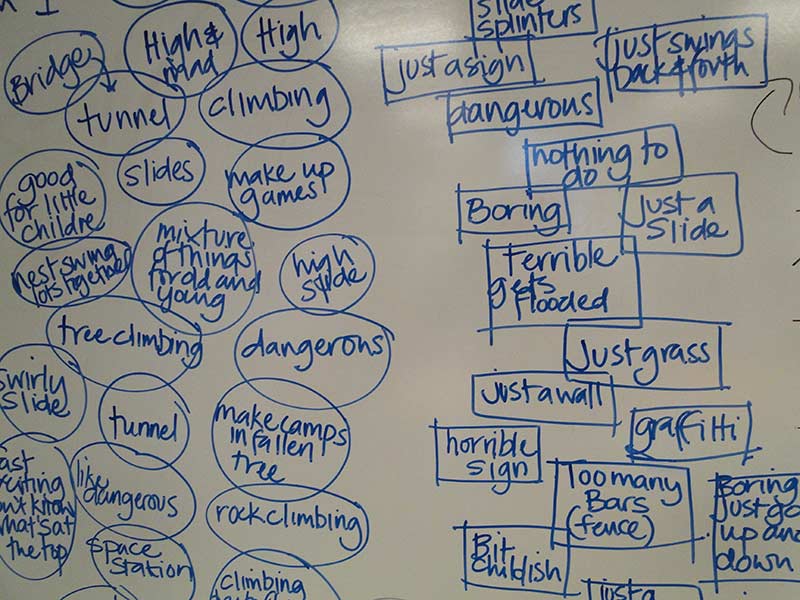 Bridge
High &
High
tunnel
climbing
good
for little
childre
slides
make up
games
nest swing
lots together
mixture
of things
for old and
young
high
slide
tree climbing
dangerous
swirly
slide
tunnel
make camps
in fallen
tree
what's at
the top
like
dangerous
rock climbing
space
station
climbing
slide
splinters
just a sign
just swings
back & forth
dangerous
nothing to
do
Boring
Just a
Slide
Terrible
gets
flooded
Just grass
Just a wall
graffitti
horrible
sign
Too many
Bars
(fence)
Boring
just go
up and
down
Bit
childish
just a